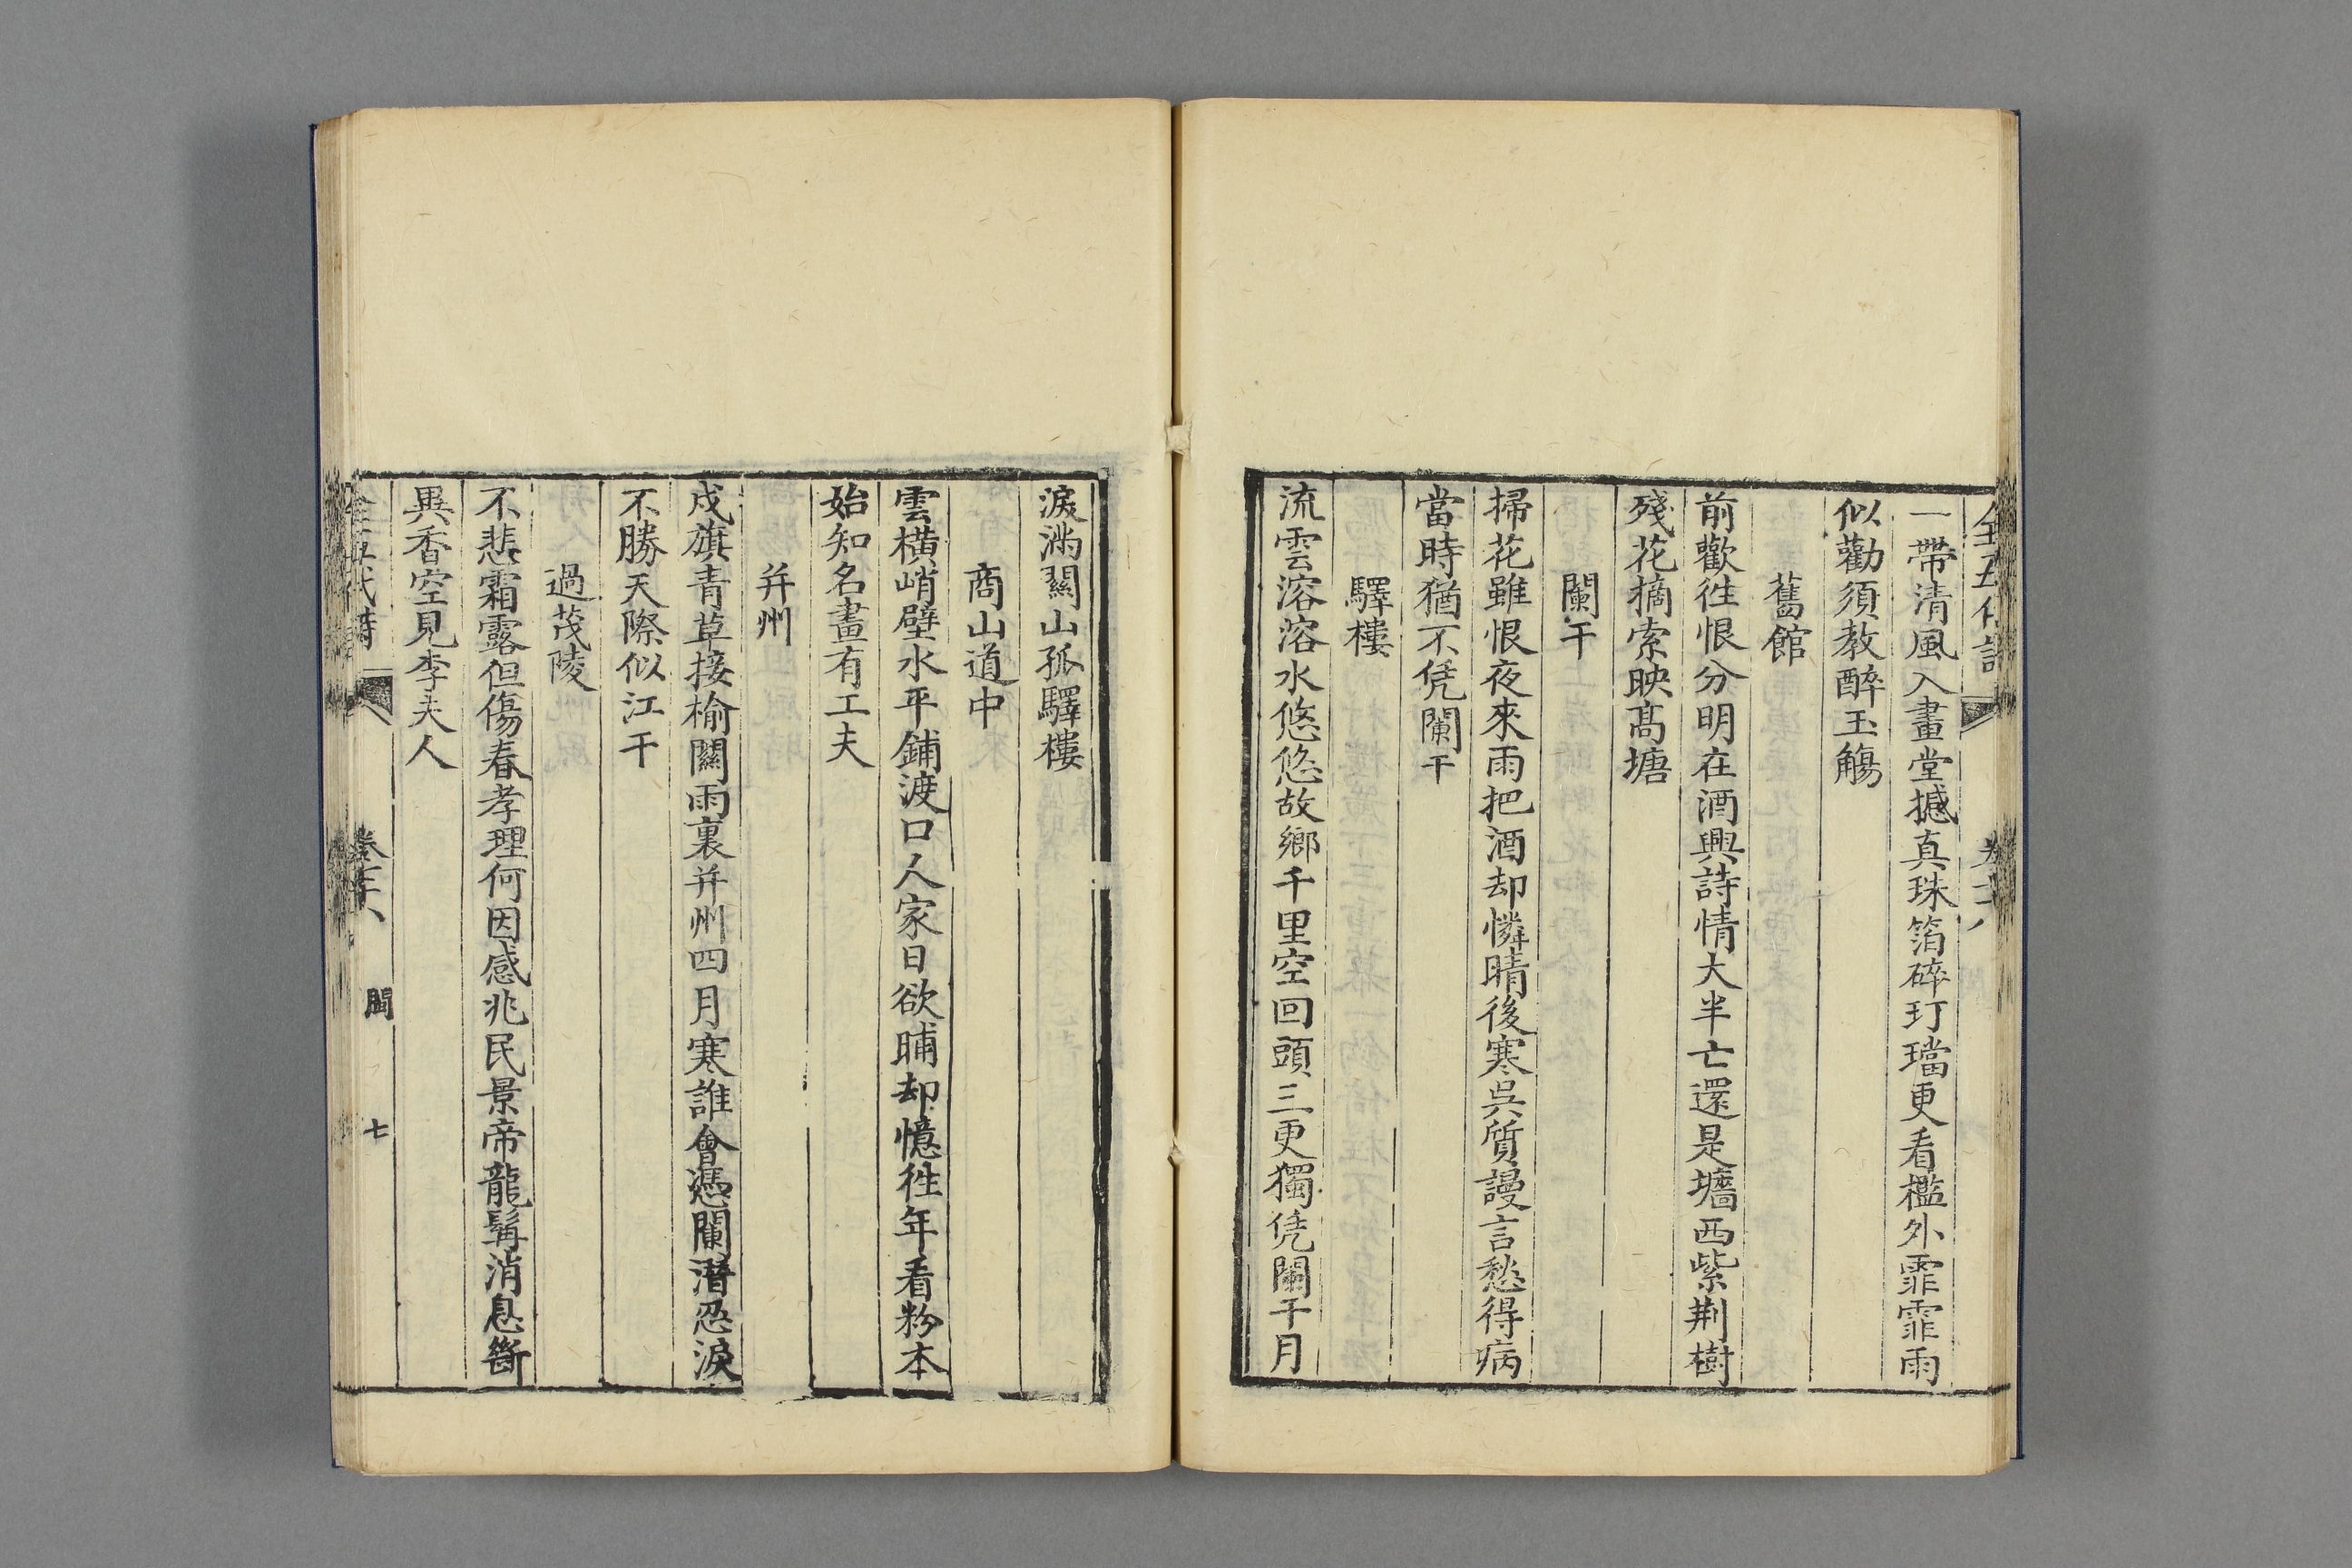 一帶清風入畫堂撼真珠箔碎玎璫更看檻外霏霏雨
似勸須教醉玉觴
舊館
前歡徃恨分明在酒興詩情大半亡還是墻西紫荆樹
殘花摘索映髙塘
闌干
掃花雖恨夜來雨把酒却憐晴後寒呉質謾言愁得病
當時猶不凭闌干
驛樓
流雲溶溶水悠悠故鄉千里空回頭三更獨凭闌干月
淚滿關山孤驛樓
商山道中
雲橫峭壁水平鋪渡口人家日欲晡却憶徃年看粉本
始知名畫有工夫
并州
戍旗青草接榆關雨裏并州四月寒誰會憑闌潛忍淚
不勝天際似江干
過茂陵
不悲霜露但傷春孝理何因感兆民景帝龍髯消息斷
異香空見李夫人
閩
七